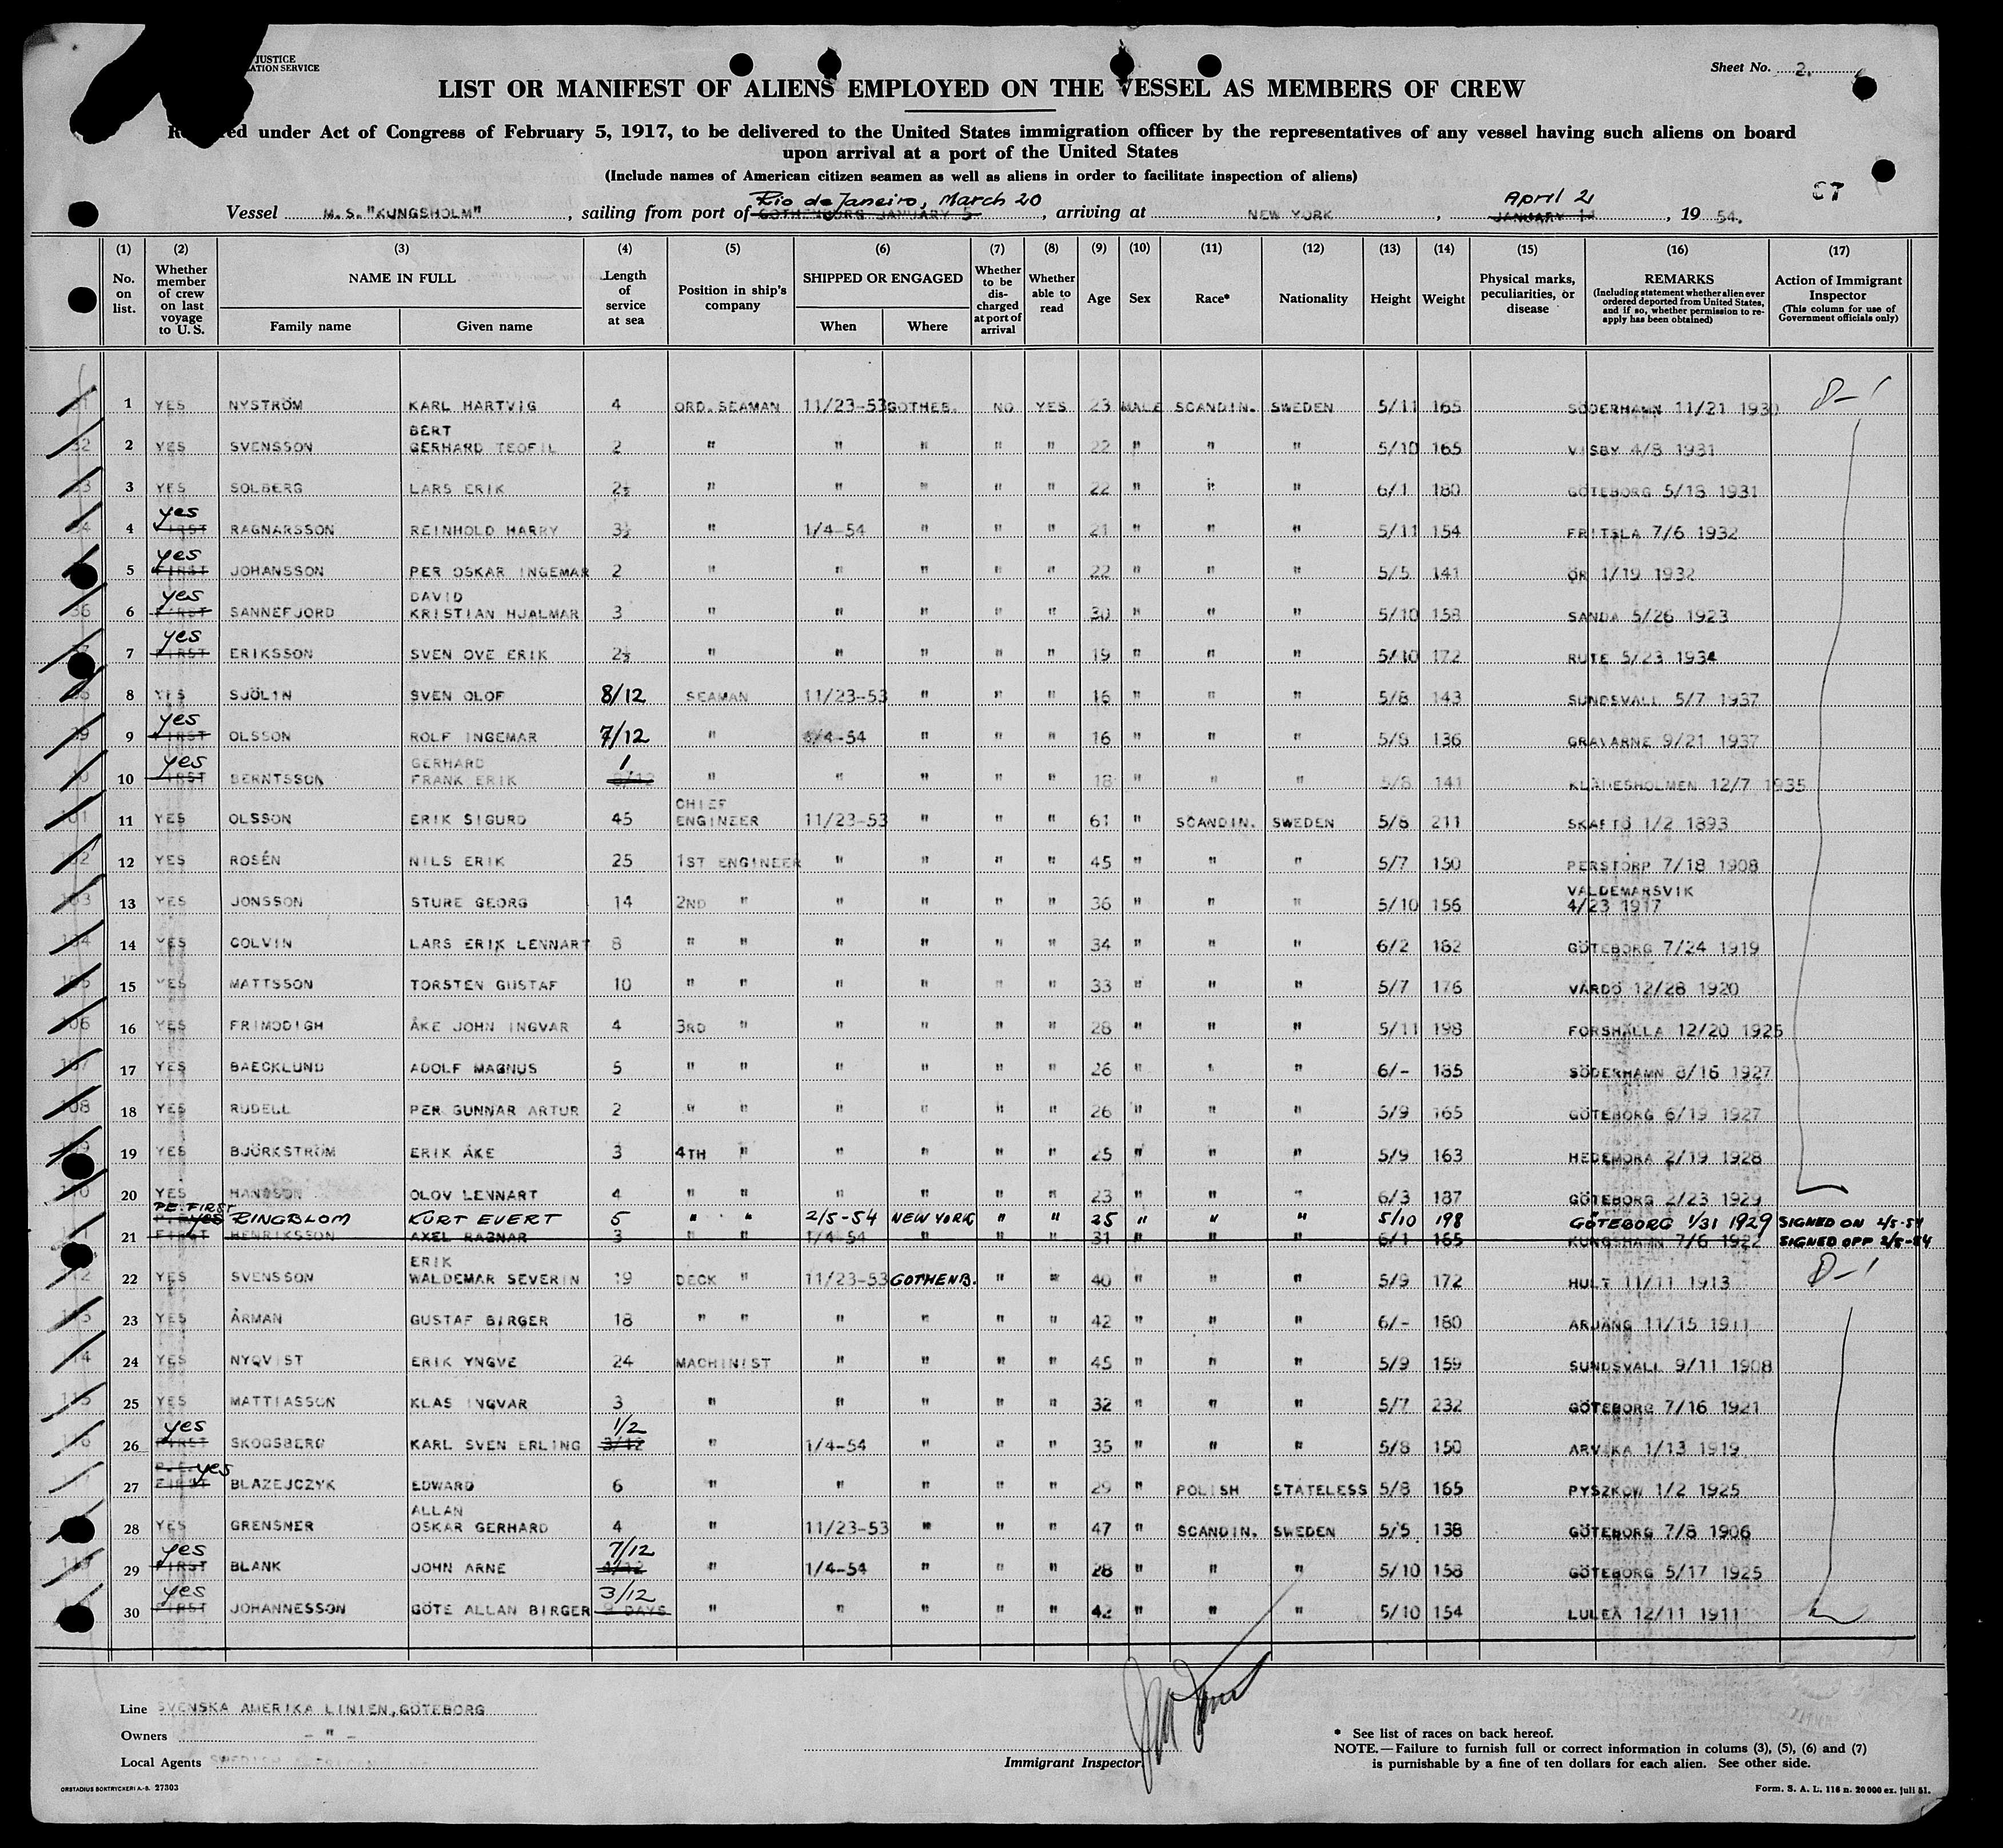 JUSTICE
ATION SERVICE
Sheet No. 2.
LIST OR MANIFEST OF ALIENS EMPLOYED ON THE VESSEL AS MEMBERS OF CREW
ed under Act of Congress of February 5, 1917, to be delivered to the United States immigration officer by the representatives of any vessel having such aliens on board
upon arrival at a port of the United States
(Include names of American citizen seamen as well as aliens in order to facilitate inspection of aliens)
ST
Rio de Janeiro, March 20 April 2,
Vessel M.S. "KUNGSHOLM", sailing from port of GOTHENBURG JANUARY 5, arriving at NEW YORK, JANUARY 14, 19 54.
(1) (2) (3) (4) (5) (6) (7) (8) (9) (10) (11) (12) (13) (14) (15) (16) (17)
No. on list. Whether member of crew on last voyage to U.S. NAME IN FULL Family name Given name Length of service at sea Position in ship's company SHIPPED OR ENGAGED When Where Whether to be discharged at port of arrival Whether able to read Age Sex Race* Nationality Height Weight Physical marks, peculiarities, or disease REMARKS (Including statement whether alien ever ordered deported from United States, and if so, whether permission to re-apply has been obtained) Action of Immigrant Inspector (This column for use of Government officials only)
1 YES NYSTRÖM KARL HARTVIG 4 ORD.SEAMAN 11/23-53 GOTHEB. NO YES 23 MALE SCANDIN. SWEDEN 5/11 165 SÖDERHAMN 11/21 1930 D-1
BERT
2 YES SVENSSON GERHARD TEOFIL 2 " " " " " 22 " " " 5/10 165 VISBY 4/8 1931
3 YES SOLBERG LARS ERIK 2½ " " " " " 22 " " " 6/1 180 GÖTEBORG 5/18 1931
yes
4 FIRST RAGNARSSON REINHOLD HARRY 3½ " 1/4-54 " " " 21 " " " 5/11 154 FRITSLA 7/6 1932
yes
5 FIRST JOHANSSON PER OSKAR INGEMAR 2 " " " " " 22 " " " 5/5 141 ÖR 1/19 1932
yes DAVID
6 FIRST SANNEFJORD KRISTIAN HJALMAR 3 " " " " " 30 " " " 5/10 158 SANDA 5/26 1923
yes
7 FIRST ERIKSSON SVEN OVE ERIK 2½ " " " " " 19 " " " 5/10 172 RUTE 5/23 1934
8 YES SJÖLIN SVEN OLOF 8/12 SEAMAN 11/23-53 " " " 16 " " " 5/8 143 SUNDSVALL 5/7 1937
yes
9 FIRST OLSSON ROLF INGEMAR 7/12 " 1/4-54 " " " 16 " " " 5/8 136 GRAVARNE 9/21 1937
yes GERHARD 1
10 FIRST BERNTSSON FRANK ERIK " " " " " 18 " " " 5/8 141 KLÄDESHOLMEN 12/7 1935
CHIEF
11 YES OLSSON ERIK SIGURD 45 ENGINEER 11/23-53 " " " 61 " SCANDIN. SWEDEN 5/8 211 SKAFTÖ 1/2 1893
12 YES ROSÉN NILS ERIK 25 1ST ENGINEER " " " " 45 " " " 5/7 150 PERSTORP 7/18 1908
VALDEMARSVIK
13 YES JONSSON STURE GEORG 14 2ND " " " " " 36 " " " 5/10 156 4/23 1917
14 YES COLVIN LARS ERIK LENNART 8 " " " " " " 34 " " " 6/2 182 GÖTEBORG 7/24 1919
15 YES MATTSSON TORSTEN GUSTAF 10 " " " " " " 33 " " " 5/7 176 VÅRDÖ 12/28 1920
16 YES FRIMODIGH ÅKE JOHN INGVAR 4 3RD " " " " " 28 " " " 5/11 198 FORSHÄLLA 12/20 1925
17 YES BAECKLUND ADOLF MAGNUS 5 " " " " " " 26 " " " 6/- 185 SÖDERHAMN 8/16 1927
18 YES RUDELL PER GUNNAR ARTUR 2 " " " " " " 26 " " " 5/9 165 GÖTEBORG 6/19 1927
19 YES BJÖRKSTRÖM ERIK ÅKE 3 4TH " " " " " 25 " " " 5/9 163 HEDEMORA 2/19 1928
20 YES HANSSON OLOV LENNART 4 " " " " " " 23 " " " 6/3 187 GÖTEBORG 2/23 1929
PE. FIRST
yes RINGBLOM KURT EVERT 5 " " 2/5-54 NEW YORK " " 25 " " " 5/10 198 GÖTEBORG 1/31 1929 SIGNED ON 2/5-54
21 FIRST HENRIKSSON AXEL RAGNAR 3 " " 1/4-54 " " " 31 " " " 6/1 165 KUNGSHAMN 7/6 1922 SIGNED OFF 2/5-54
ERIK
22 YES SVENSSON WALDEMAR SEVERIN 19 DECK " 11/23-53 GOTHENB. " " 40 " " " 5/9 172 HULT 11/11 1913 D-1
23 YES ÅRMAN GUSTAF BIRGER 18 " " " " " " 42 " " " 6/- 180 ÅRJÄNG 11/15 1911
24 YES NYQVIST ERIK YNGVE 24 MACHINIST " " " " 45 " " " 5/9 159 SUNDSVALL 9/11 1908
25 YES MATTIASSON KLAS INGVAR 3 " " " " " 32 " " " 5/7 232 GÖTEBORG 7/16 1921
yes 1/2
26 FIRST SKOGSBERG KARL SVEN ERLING 3/12 " 1/4-54 " " " 35 " " " 5/8 150 ARVIKA 1/13 1919
yes
27 FIRST BLAZEJCZYK EDWARD 6 " " " " " 29 " POLISH STATELESS 5/8 165 PYSZKOW 1/2 1925
ALLAN
28 YES GRENSNER OSKAR GERHARD 4 " 11/23-53 " " " 47 " SCANDIN. SWEDEN 5/5 138 GÖTEBORG 7/8 1906
yes 7/12
29 FIRST BLANK JOHN ARNE 4/12 " 1/4-54 " " " 28 " " " 5/10 158 GÖTEBORG 5/17 1925
yes 3/12
30 FIRST JOHANNESSON GÖTE ALLAN BIRGER DAYS " " " " " 42 " " " 5/10 154 LULEÅ 12/11 1911
Line SVENSKA AMERIKA LINIEN, GÖTEBORG
Owners - " -
Local Agents SWEDISH
Immigrant Inspector.
* See list of races on back hereof.
NOTE.—Failure to furnish full or correct information in colums (3), (5), (6) and (7)
is purnishable by a fine of ten dollars for each alien. See other side.
ORSTADIUS BOKTRYCKERI A.-B. 27303
Form. S. A. L. 116 n. 20 000 ex. juli 51.